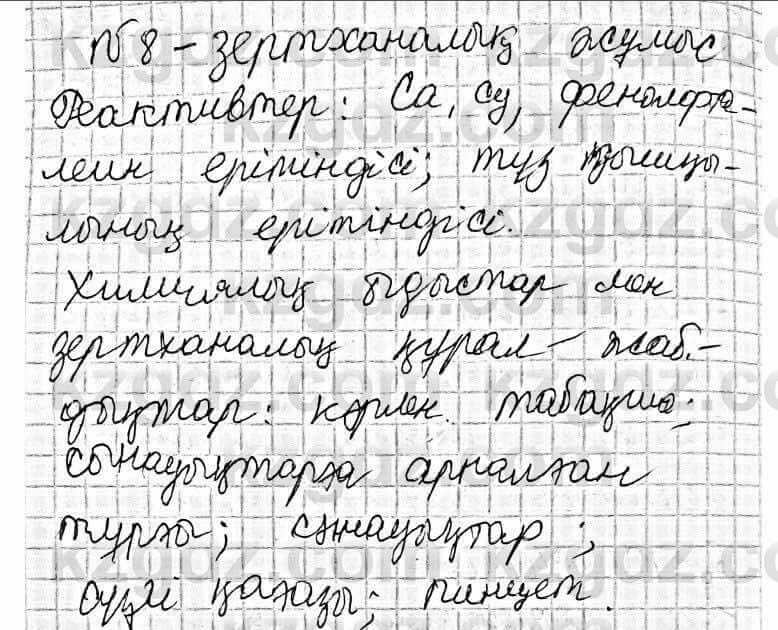 №8 – зертханалық жұмыс
Реактивтер: Ca, су, фенолфта-
леин ерітіндісі; тұз қышқы-
лының ерітіндісі.
Химиялық ыдыстар мен
зертханалық құрал – жаб.-
дықтар: кәрлен табақша;
сынауықтарға арналған
тұрғы; сынауықтар;
сүзгі қағазы; пинцет.